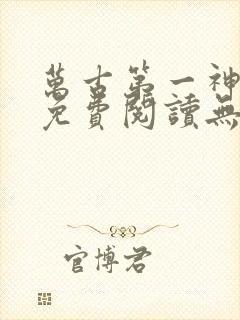 萬古第一神
免費閱讀無
官博君